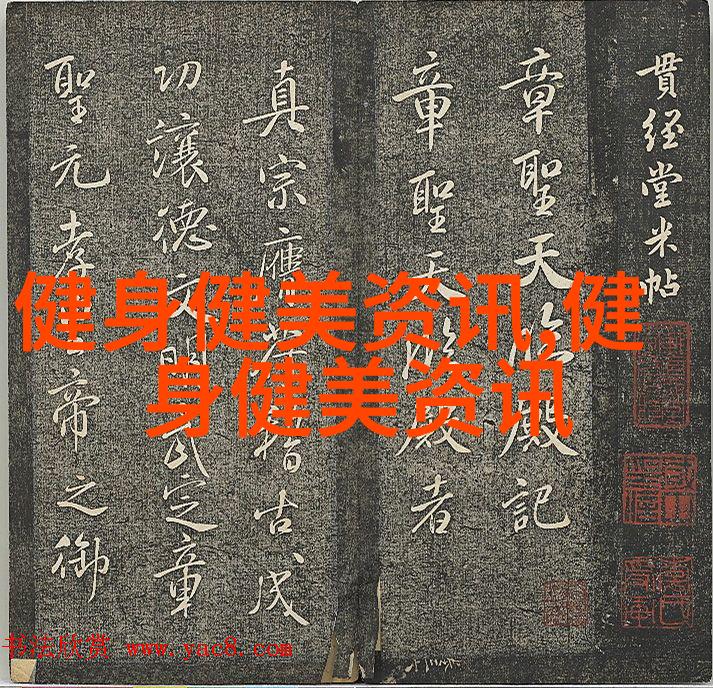 貫經堂米帖
章聖天臨殿記
章聖天臨殿者
真宗膺稽古成
功讓德文明武定章
聖元孝皇帝之御
健身健美资讯 健
身健美资讯
书法欣赏 www.yac8.com